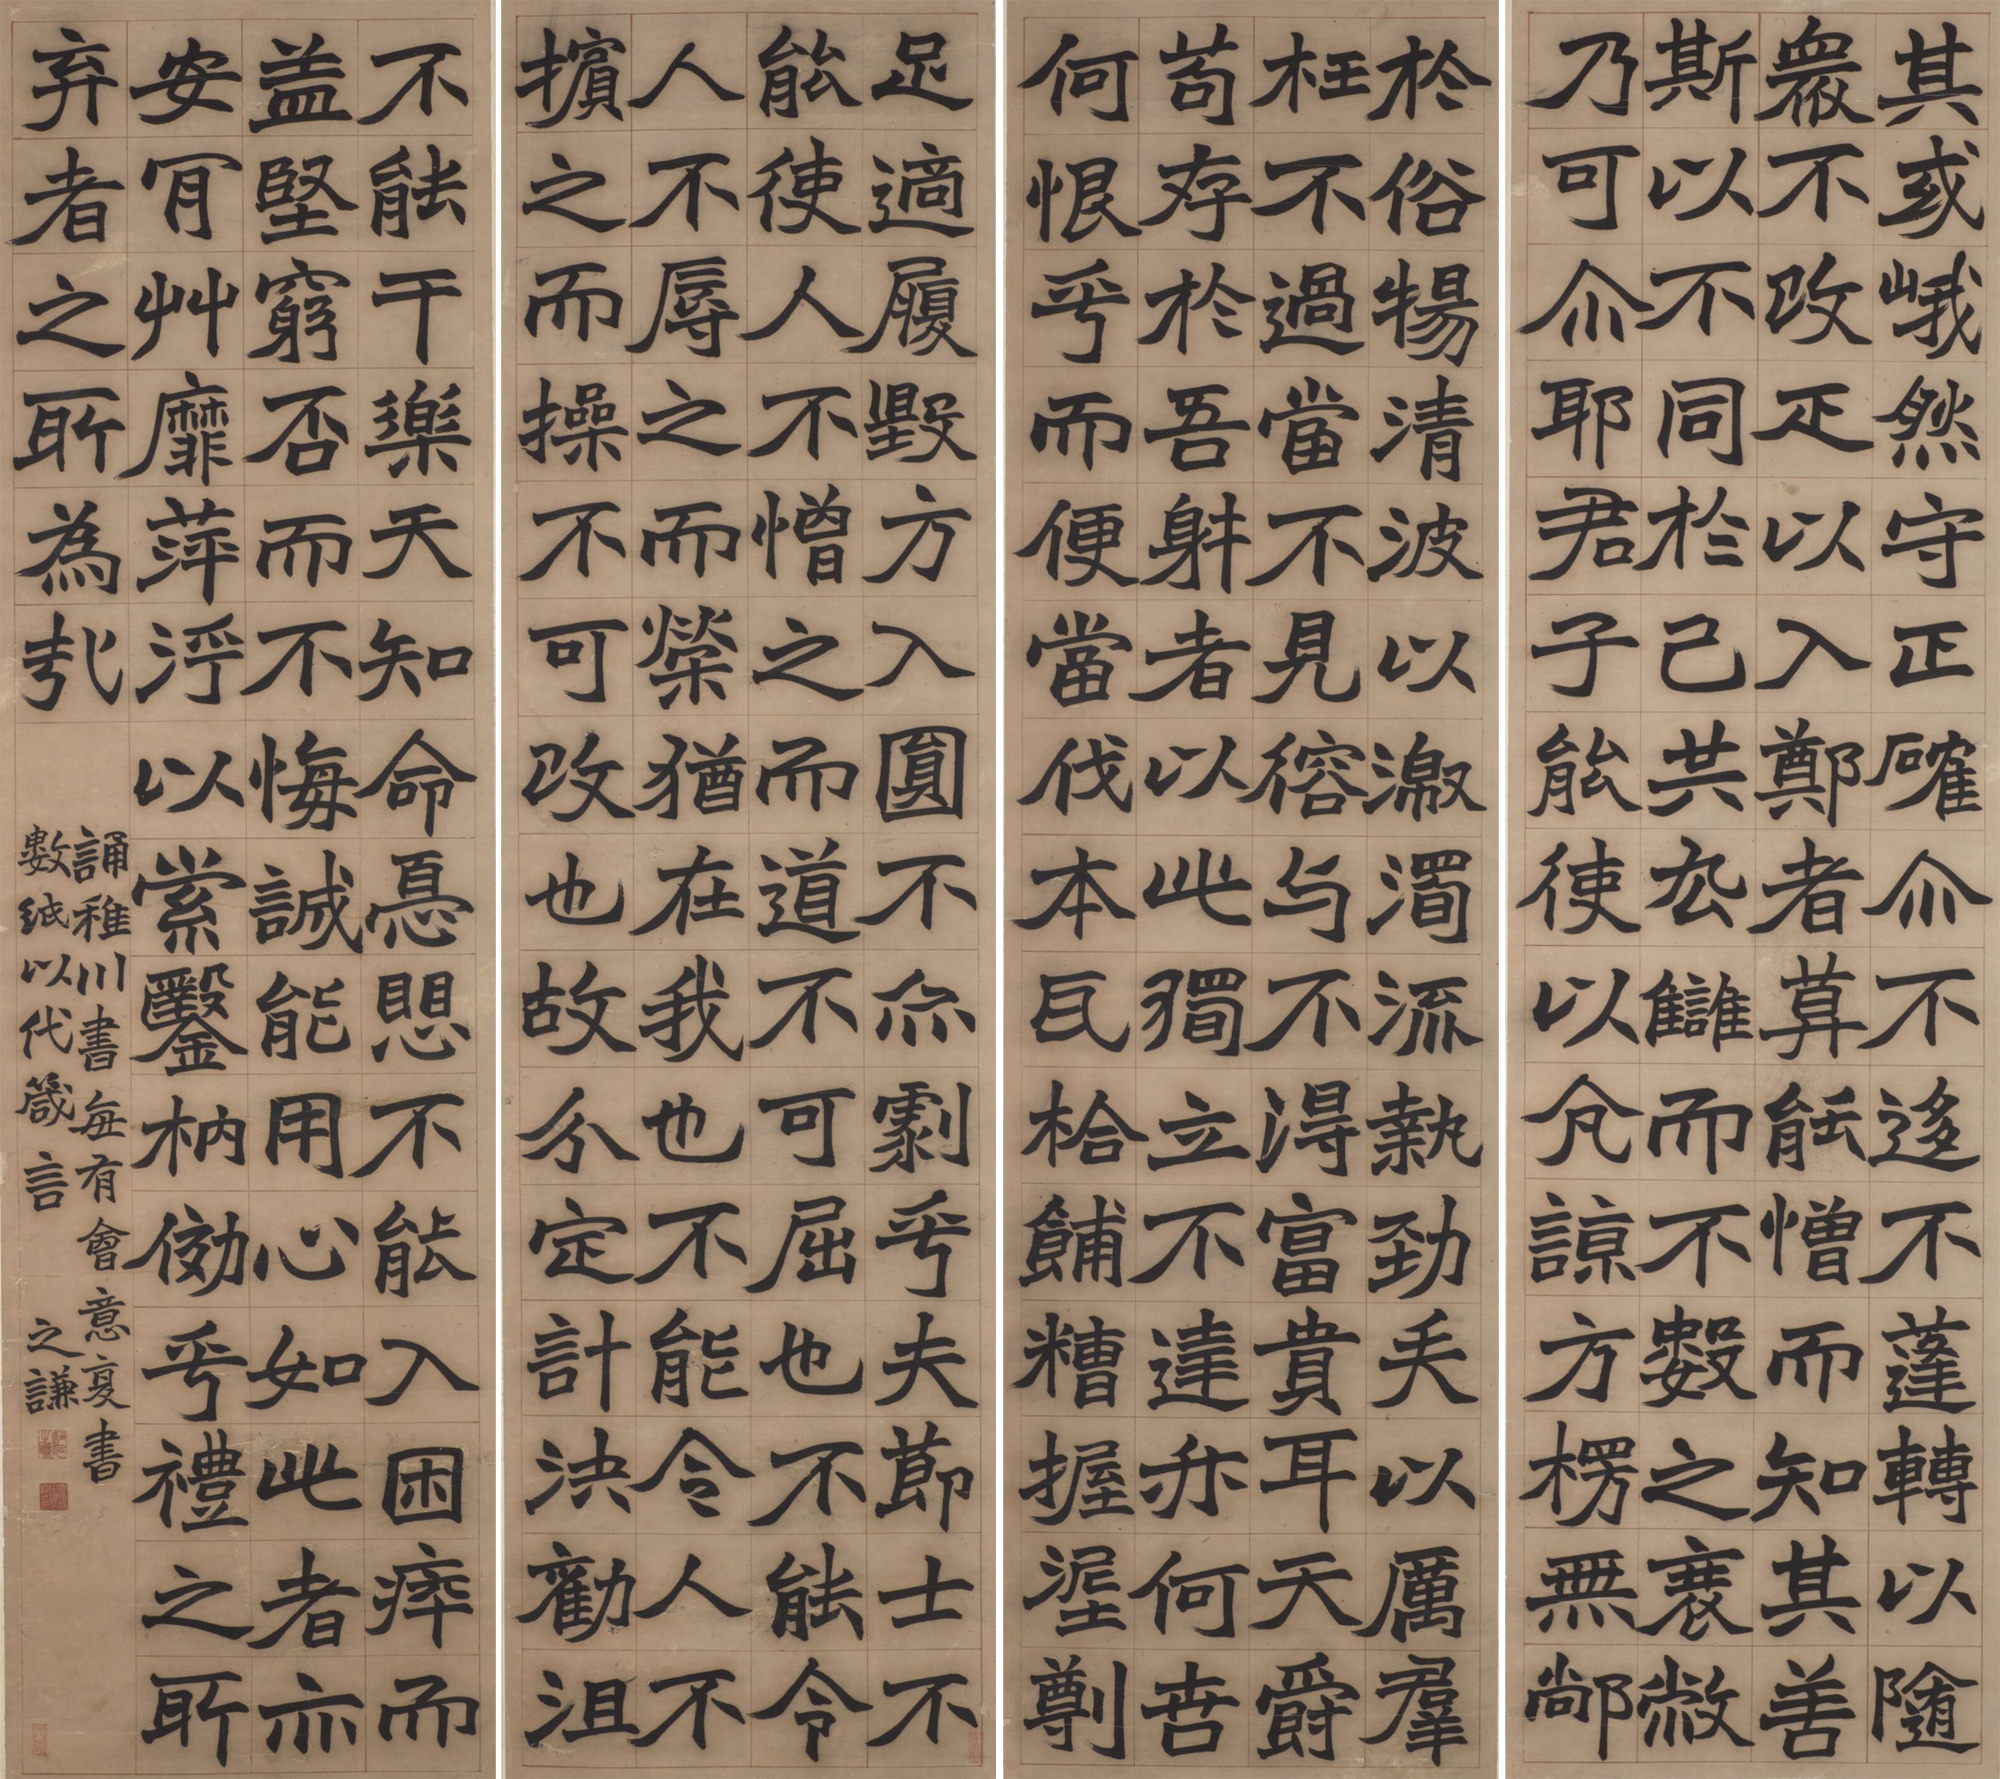 其或峨然守正確尒不迻不蓬轉以隨
衆不改疋以入鄭者莫能憎而知其善
斯以不同於己共厹讎而不數之衰敝
乃可尒耶君子能使以亢諒方楞無䣊
於俗揚清波以激濁流執勁矢以厲羣
枉不過當不見容与不得富貴耳天爵
苟存於吾躰者以此獨立不達亦何苦
何恨乎而便當伐本瓦枱餔糟握泥剸
足適履毀方入圓不尒劇乎夫節士不
能使人不憎之而道不可屈也不能令
人不辱之而榮猶在我也不能令人不
擯之而操不可改也故分定計決勸沮
不能干樂天知命憂愳不能入困瘁而
益堅窮否而不悔誠能用心如此者亦
安肎艸靡萍浮以索鑿枘傚乎禮之所
弃者之所為哉
誦稚川書每有會意复書
數紙以代箴言 之謙